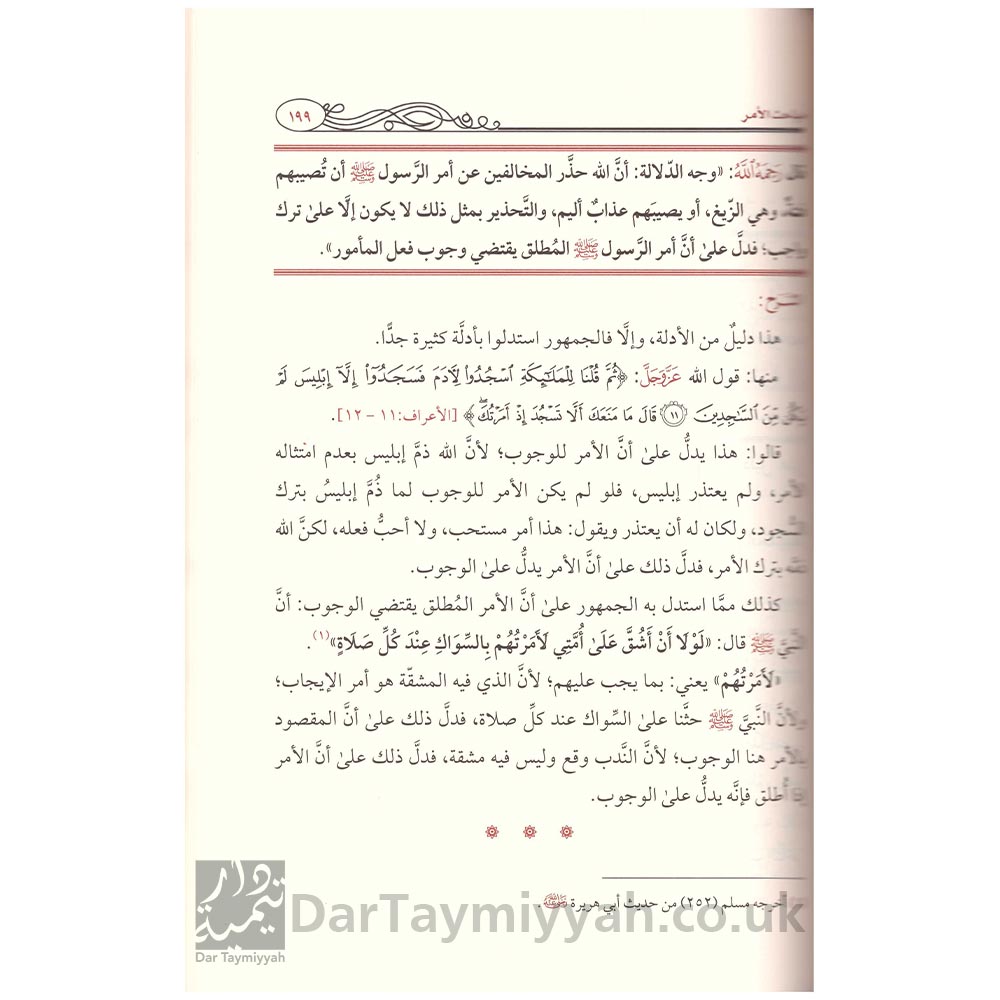 مباحث الأمر
١٩٩
قال رَحِمَهُ ٱللَّهُ: «وجه الدّلالة: أنَّ الله حذَّر المخالفين عن أمر الرَّسول ﷺ أن تُصيبهم
فتنة، وهي الزّيغ، أو يصيبَهم عذابٌ أليم، والتَّحذير بمثل ذلك لا يكون إلَّا علىٰ ترك
واجب؛ فدلَّ علىٰ أنَّ أمر الرَّسول ﷺ المُطلق يقتضي وجوب فعل المأمور».
الشرح:
هذا دليلٌ من الأدلة، وإلَّا فالجمهور استدلوا بأدلَّة كثيرة جدًّا.
منها: قول الله عَزَّوَجَلَّ: ﴿ثُمَّ قُلْنَا لِلْمَلَـٰٓئِكَةِ ٱسْجُدُوا۟ لِـَٔادَمَ فَسَجَدُوٓا۟ إِلَّآ إِبْلِيسَ لَمْ
يَكُن مِّنَ ٱلسَّـٰجِدِينَ ۝١١ قَالَ مَا مَنَعَكَ أَلَّا تَسْجُدَ إِذْ أَمَرْتُكَ ۖ﴾ [الأعراف: ١١ – ١٢].
قالوا: هذا يدلُّ علىٰ أنَّ الأمر للوجوب؛ لأنَّ الله ذمَّ إبليس بعدم امتثاله
الأمر، ولم يعتذر إبليس، فلو لم يكن الأمر للوجوب لما ذُمَّ إبليسُ بترك
السُّجود، ولكان له أن يعتذر ويقول: هذا أمر مستحب، ولا أحبُّ فعله، لكنَّ الله
ذمَّه بترك الأمر، فدلَّ ذلك علىٰ أنَّ الأمر يدلُّ علىٰ الوجوب.
كذلك ممَّا استدل به الجمهور علىٰ أنَّ الأمر المُطلق يقتضي الوجوب: أنَّ
النَّبيَّ ﷺ قال: «لَوْلَا أَنْ أَشُقَّ عَلَىٰ أُمَّتِي لَأَمَرْتُهُمْ بِالسِّوَاكِ عِنْدَ كُلِّ صَلَاةٍ»(١).
«لَأَمَرْتُهُمْ» يعني: بما يجب عليهم؛ لأنَّ الذي فيه المشقّة هو أمر الإيجاب؛
ولأنَّ النَّبيَّ ﷺ حثَّنا علىٰ السِّواك عند كلِّ صلاة، فدلَّ ذلك علىٰ أنَّ المقصود
بالأمر هنا الوجوب؛ لأنَّ النَّدب وقع وليس فيه مشقة، فدلَّ ذلك علىٰ أنَّ الأمر
إذا أُطلق فإنَّه يدلُّ علىٰ الوجوب.
أخرجه مسلم (٢٥٢) من حديث أبي هريرة رَضِيَ ٱللَّهُ عَنْهُ.
دار تيمية
Dar Taymiyyah
DarTaymiyyah.co.uk